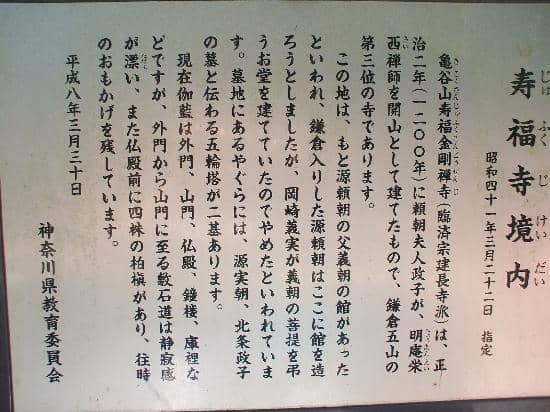 寿福寺境内
じゅふくじけいだい
昭和四十一年三月二十二日 指定
亀谷山寿福金剛禅寺(臨済宗建長寺派)は、正
きこくざんじゅふくこんごうぜんじ
治二年(一二〇〇年)に頼朝夫人政子が、明庵栄
西禅師を開山として建てたもので、鎌倉五山の
さい
第三位の寺であります。
この地は、もと源頼朝の父義朝の館があった
といわれ、鎌倉入りした源頼朝はここに館を造
ろうとしましたが、岡崎義実が義朝の菩提を弔
うお堂を建てていたのでやめたといわれていま
す。墓地にあるやぐらには、源実朝、北条政子
の墓と伝わる五輪塔が二基あります。
現在伽藍は外門、山門、仏殿、鐘楼、庫裡な
どですが、外門から山門に至る敷石道は静寂感
が漂い、また仏殿前に四株の柏槇があり、往時
のおもかげを残しています。
平成八年三月三十日
神奈川県教育委員会